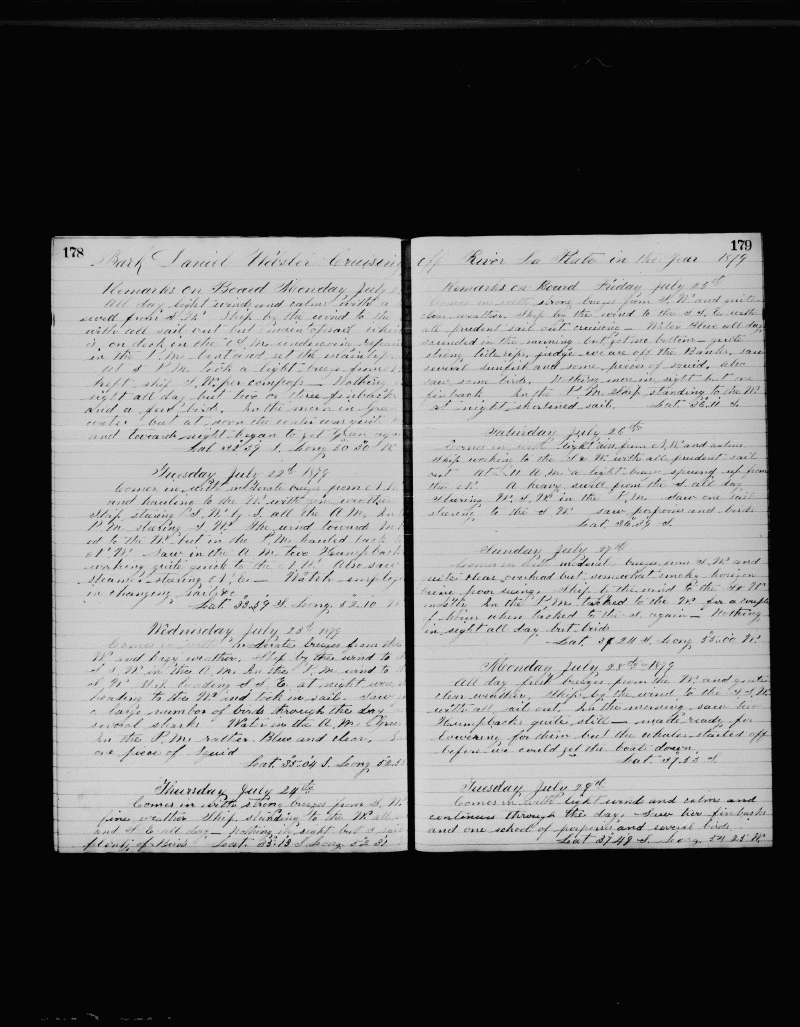 178
Bark Daniel Webster Cruising
Remarks on Board Monday July
All day light winds and calms with a
swell from S.W. Ship by the wind to the
with all sail out but main topsail which
is on deck in the A.M. undergoing repairs
in the P.M. bent and set the main top
at 5 P.M. took a light breeze from
kept ship S.W. per compass — Nothing in
sight all day but two or three finbacks
and a few birds. In the morn in Green
water but at noon the water was quite
and towards night began to get Green again
Lat 32.59 S. Long 50.30 W
Tuesday July 22d 1879
Comes in with moderate breeze from N.
and hauling to the W. with fine weather
Ship staring S.W. by S. all the A.M. In
P.M. staring S.W. The wind towards
ed to the W. but in the P.M. hauled back to
N.W. Saw in the A.M. two Humpbacks
working quite quick to the Also saw
Steamer staring N.E. — Watch employed
in changing sails &c
Lat. 33.59 S. Long. 52.10 W
Wednesday July 23d 1879
Comes in with moderate breezes from the
W. and hazy weather. Ship by the wind to
S.S.W. in the A.M. In the P.M. wind to
S.W. Ship heading S.S.E. at night wore
heading to the W. and took in sail. Saw
a large number of birds through the day
several sharks Water in the A.M. Green
In the P.M. rather Blue and clear.
one piece of squid
Lat. 35.04 S. Long 52.
Thursday July 24th
Comes in with strong breezes from S.W.
fine weather Ship standing to the W. all
and S.E. all day — Nothing in sight but a sail
plenty of Birds Lat. 35.13 S. Long. 52.31
179
Off River La Plata in the year 1879
Remarks on Board Friday July 25th
Comes in with strong breezes from S.W. and quite
clear weather Ship by the wind to the S.S.E. with
all prudent sail out cruising — Water Blue all day
sounded in the morning but got no bottom — quite
strong tide rips, judge we are off the Banks, saw
several sunfish and some pieces of squid, also
saw some birds. Nothing more in sight but one
finback In the P.M. Ship standing to the W.
at night shortened sail. Lat 36.11 S.
Saturday July 26th
Comes in with light airs from N.W. and calms
ship working to the S & W. with all prudent sail
out At 11 A.M. a light breeze sprung up from
the N. A heavy swell from the S. all day
staring W.S.W. in the P.M. Saw one sail
staring to the S.W. saw porpoises and birds
Lat. 36.39 S.
Sunday July 27th
Comes in with moderate breezes from S.W. and
quite clear overhead but somewhat smoky horizon
being poor seeing. Ship by the wind to the S & W.
mostly In the P.M. tacked to the W. for a couple
of hours when tacked to the S. again — Nothing
in sight all day but birds
Lat. 37.24 S. Long 53.00 W.
Monday July 28th — 1879
All day fresh breezes from the W. and quite
clear weather. Ship by the wind to the S.S.W.
with all sail out. In the morning saw two
Humpbacks quite still — made ready for
lowering for them but the whales started off
before we could get the boats down.
Lat. 37.53 S.
Tuesday July 29th
Comes in with light wind and calms and
continues through the day. Saw two finbacks
and one school of porpoises and several birds
Lat 37.49 S. Long. 54.25 W.